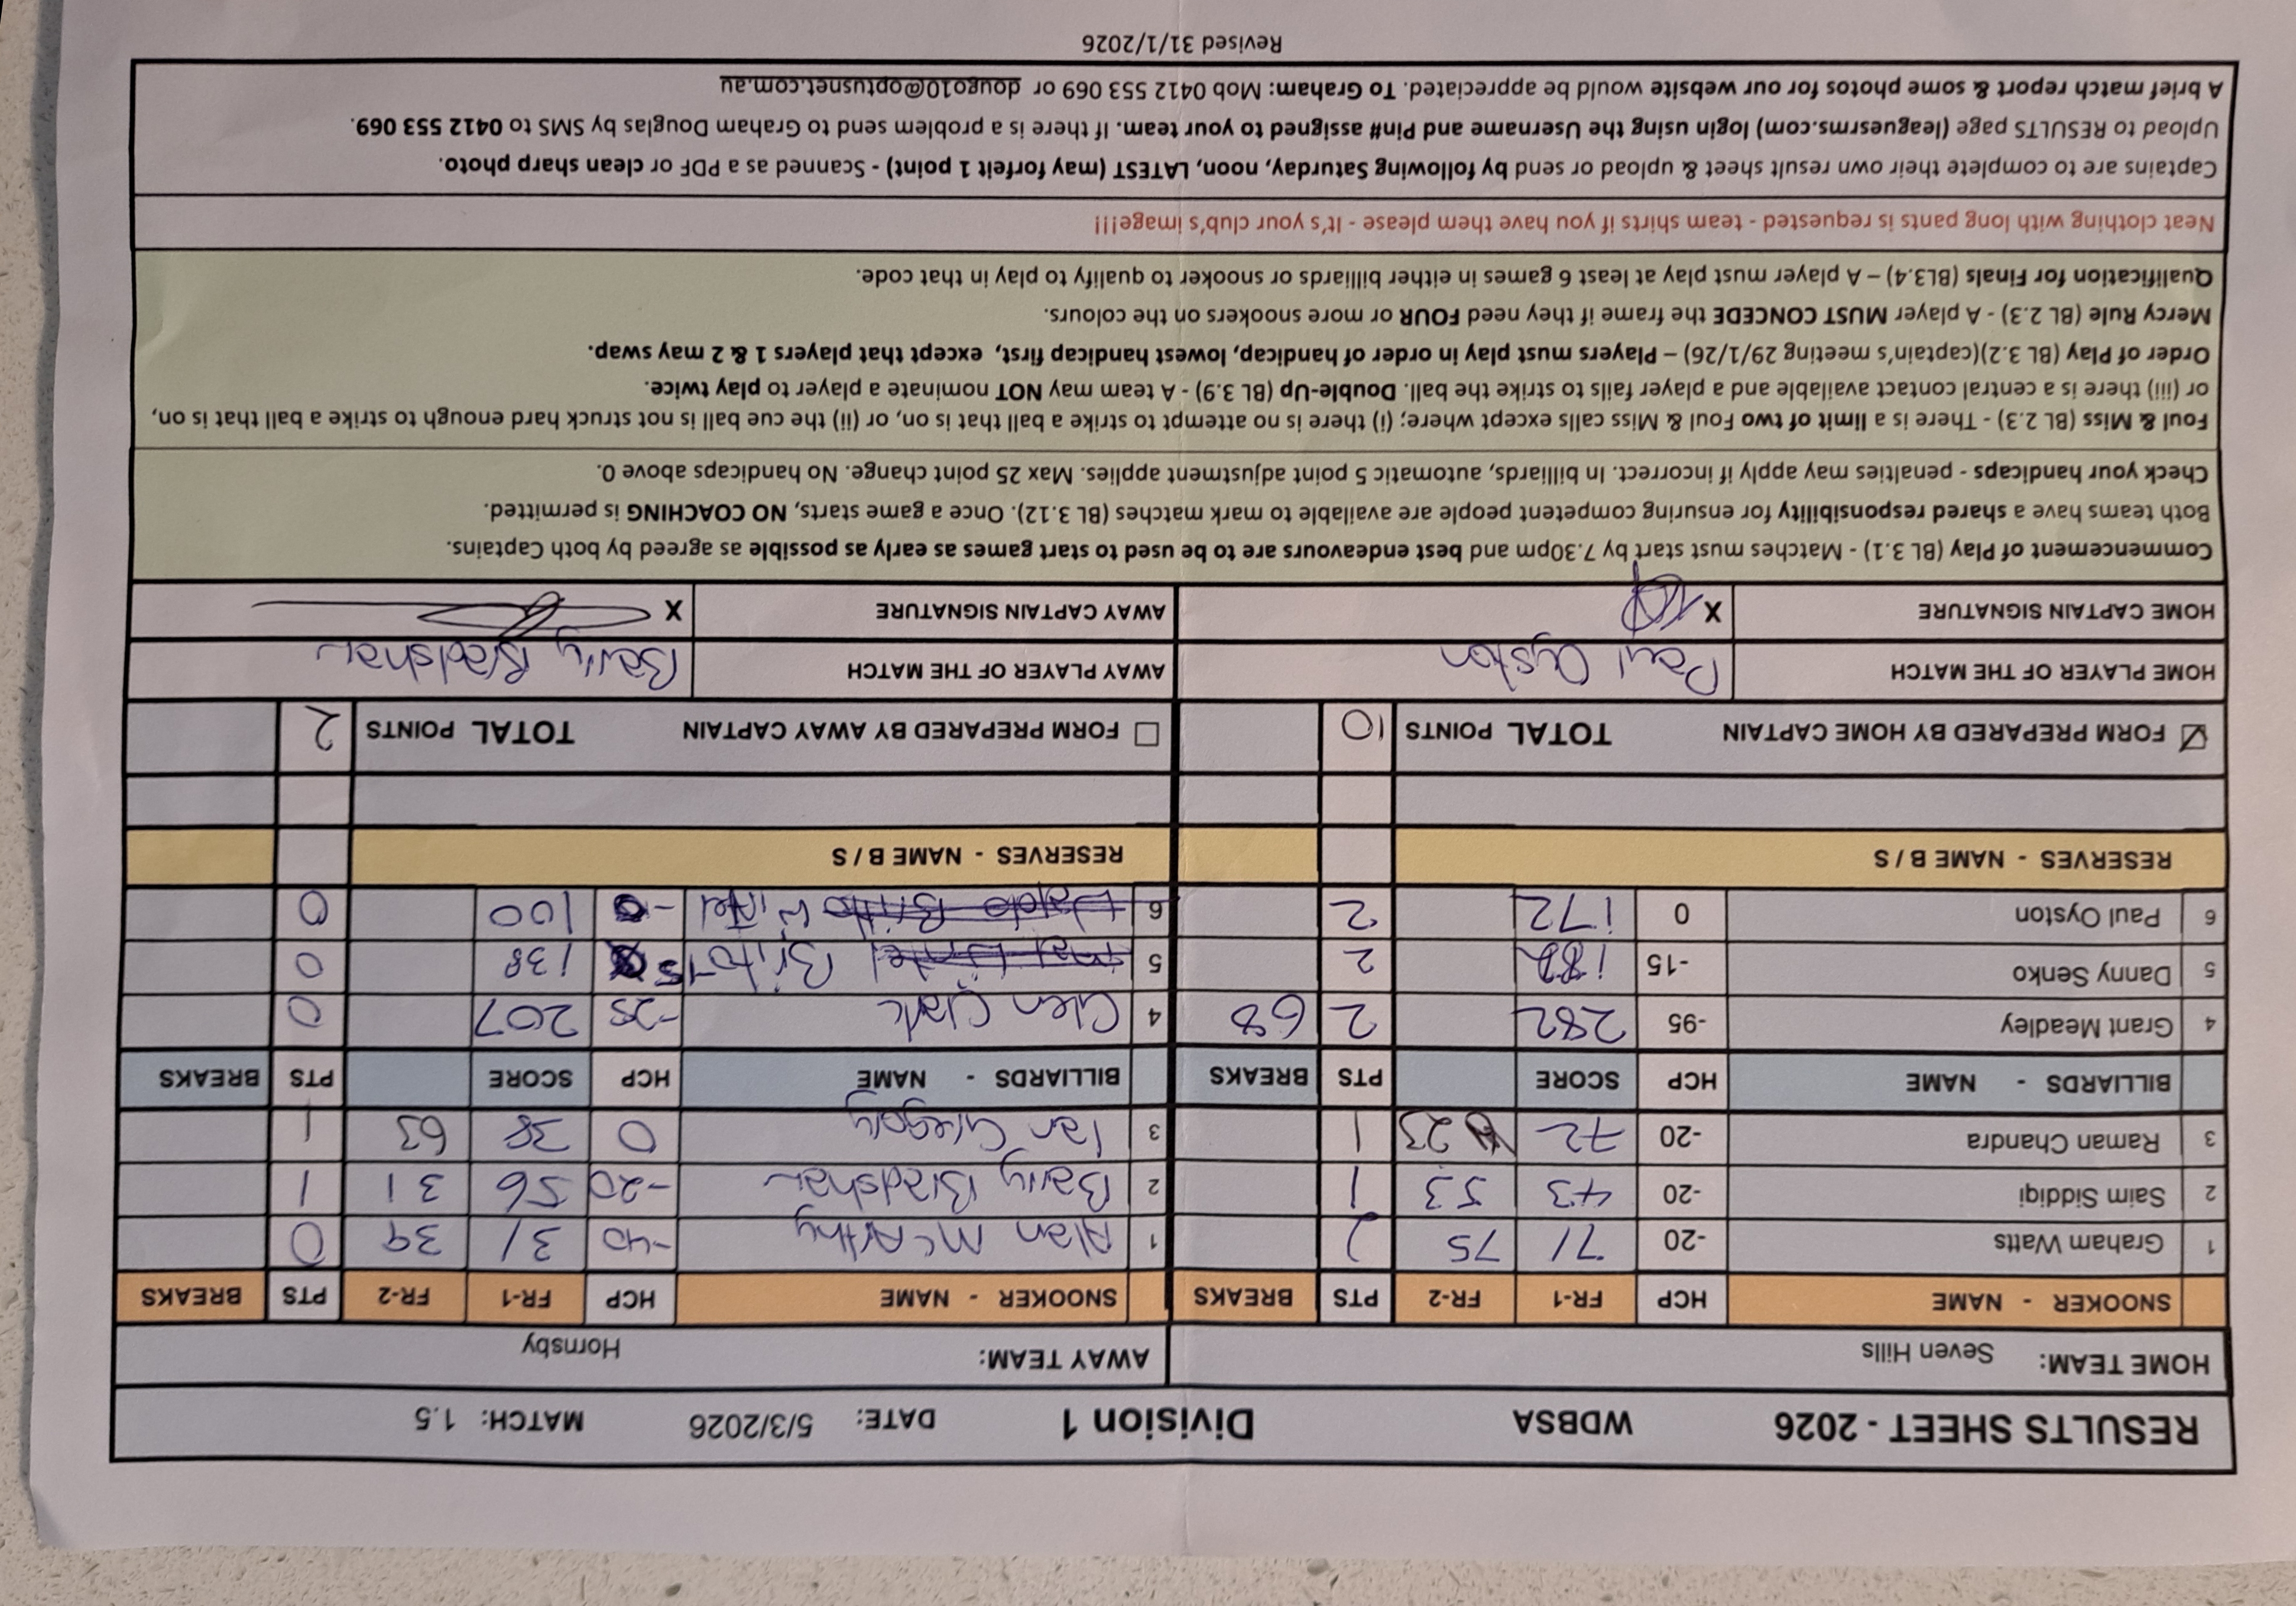 RESULTS SHEET - 2026 WDBSA Division 1 DATE: 5/3/2026 MATCH: 1.5
HOME TEAM: Seven Hills AWAY TEAM: Hornsby
SNOOKER - NAME HCP FR-1 FR-2 PTS BREAKS SNOOKER - NAME HCP FR-1 FR-2 PTS BREAKS
1 Graham Watts -20 71 75 2 1 Alan McArthy -40 31 39 0
2 Saim Siddiqi -20 43 53 1 2 Barry Bradshaw -20 56 31 1
3 Raman Chandra -20 72 23 1 3 Ian Gregory 0 38 63 1
BILLIARDS - NAME HCP SCORE PTS BREAKS BILLIARDS - NAME HCP SCORE PTS BREAKS
4 Grant Meadley -95 282 2 68 4 Glen Clark -25 207 0
5 Danny Senko -15 182 2 5 Brito -15 138 0
6 Paul Oyston 0 172 2 6 Waldo Britto 100 0
RESERVES - NAME B / S RESERVES - NAME B / S
☑ FORM PREPARED BY HOME CAPTAIN TOTAL POINTS 10 ☐ FORM PREPARED BY AWAY CAPTAIN TOTAL POINTS 2
HOME PLAYER OF THE MATCH Paul Oyston AWAY PLAYER OF THE MATCH Barry Bradshaw
HOME CAPTAIN SIGNATURE X AWAY CAPTAIN SIGNATURE X
Commencement of Play (BL 3.1) - Matches must start by 7.30pm and best endeavours are to be used to start games as early as possible as agreed by both Captains.
Both teams have a shared responsibility for ensuring competent people are available to mark matches (BL 3.12). Once a game starts, NO COACHING is permitted.
Check your handicaps - penalties may apply if incorrect. In billiards, automatic 5 point adjustment applies. Max 25 point change. No handicaps above 0.
Foul & Miss (BL 2.3) - There is a limit of two Foul & Miss calls except where; (i) there is no attempt to strike a ball that is on, or (ii) the cue ball is not struck hard enough to strike a ball that is on,
or (iii) there is a central contact available and a player fails to strike the ball. Double-Up (BL 3.9) - A team may NOT nominate a player to play twice.
Order of Play (BL 3.2)(captain's meeting 29/1/26) – Players must play in order of handicap, lowest handicap first, except that players 1 & 2 may swap.
Mercy Rule (BL 2.3) - A player MUST CONCEDE the frame if they need FOUR or more snookers on the colours.
Qualification for Finals (BL3.4) – A player must play at least 6 games in either billiards or snooker to qualify to play in that code.
Neat clothing with long pants is requested - team shirts if you have them please - It's your club's image!!!
Captains are to complete their own result sheet & upload or send by following Saturday, noon, LATEST (may forfeit 1 point) - Scanned as a PDF or clean sharp photo.
Upload to RESULTS page (leaguesrms.com) login using the Username and Pin# assigned to your team. If there is a problem send to Graham Douglas by SMS to 0412 553 069.
A brief match report & some photos for our website would be appreciated. To Graham: Mob 0412 553 069 or dougo10@optusnet.com.au
Revised 31/1/2026